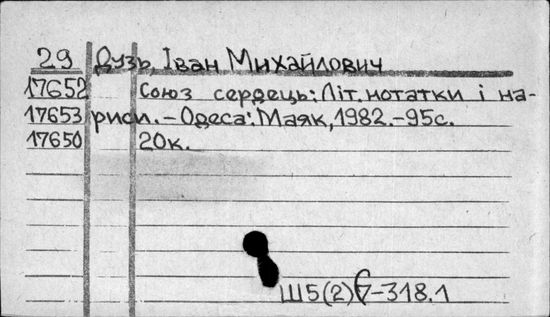 29 Дузь, Іван Михайлович
17652 Союз сердець: Літ. нотатки і на-
17653 риси. – Одеса: Маяк, 1982. – 95с.
17650 20к.
Ш5(2)7-318.1